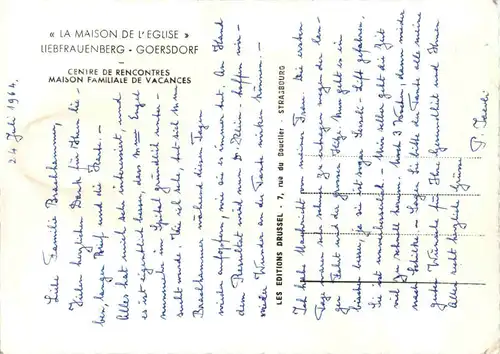 « LA MAISON DE L'EGLISE »
LIEBFRAUENBERG - GOERSDORF
CENTRE DE RENCONTRES
MAISON FAMILIALE DE VACANCES
24 Juli 1964
Liebe Familie Baselhammer,
Vielen herzlichen Dank für Ihren lie-
ben, langen Brief und die Karte.
Alles hat mich sehr interessiert, und
es ist eigentlich besser, dass Mme Engel
nunmehr im Spital gründlich unter-
sucht wurde. Wie ich sehe, hat sich Mme
Baselhammer während diesen Tagen
wieder aufgeopfert, wie sie es immer tut. An Hand
dem Resultat wird nun Dr. Klein hoffen wir-
wieder Wunder an der Tante wirken können. -
LES EDITIONS DRUSSEL - 7, rue du Bouclier - STRASBOURG
Ich habe Nachricht von meiner Frau. Die ersten
Tage waren sehr schwer zu ertragen wegen der lan-
gen Fahrt und der grossen Hitze. Nun geht es ein
bischen besser, ja sie ist sogar Sessel-Lift gefahren.
Sie ist unverbesserlich. - Mir selber geht die Zeit
viel zu schnell herum. Noch 3 Wochen, dann wieder
nach Schiltke - Sagen Sie bitte der Tante alle meine
guten Wünsche für Ihre Gesundheit und Ihnen
Allen recht herzliche Grüsse